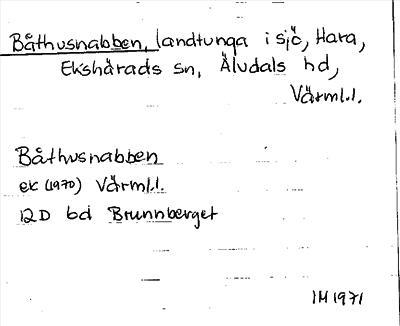 Båthusnabben, landtunga i sjö, Hara,
Ekshärads sn, Älvdals hd,
Värml.l.
Båthusnabben
ek (1970) Värml.l.
12D bd Brunnberget
IM 1971